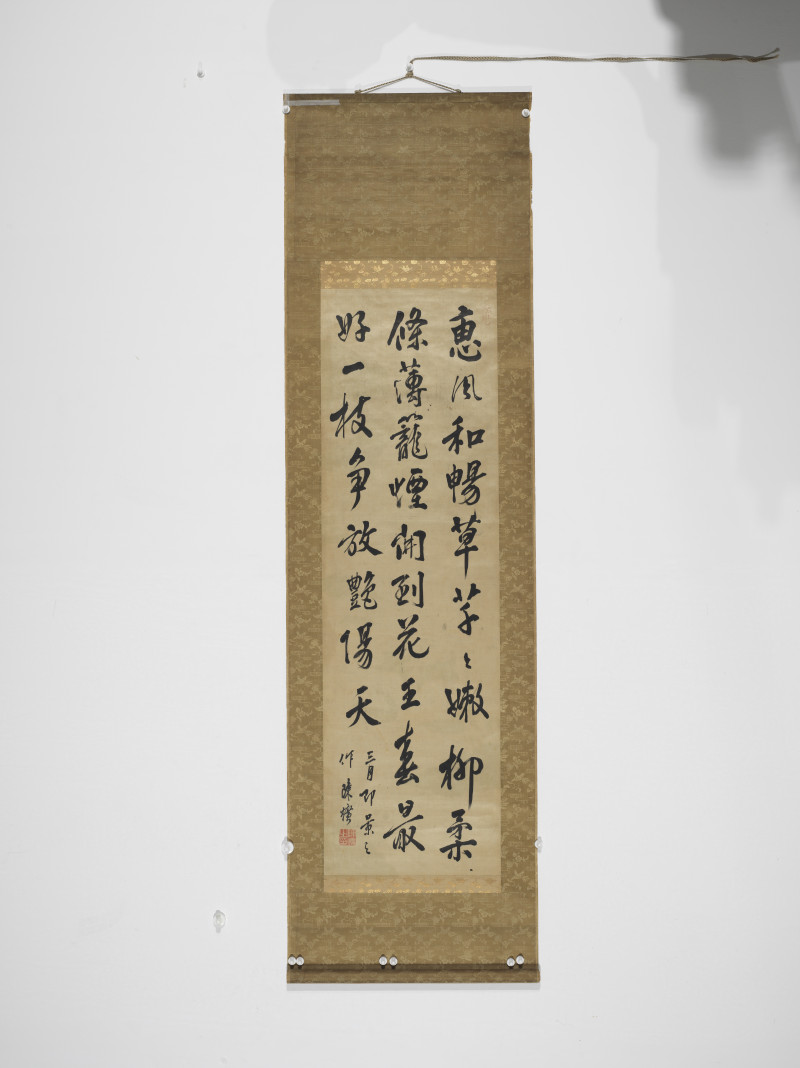 惠風和暢草芊〻嫩柳柔
條薄籠煙開到花王春最
好一枝爭放艷陽天
三月即景
作陳